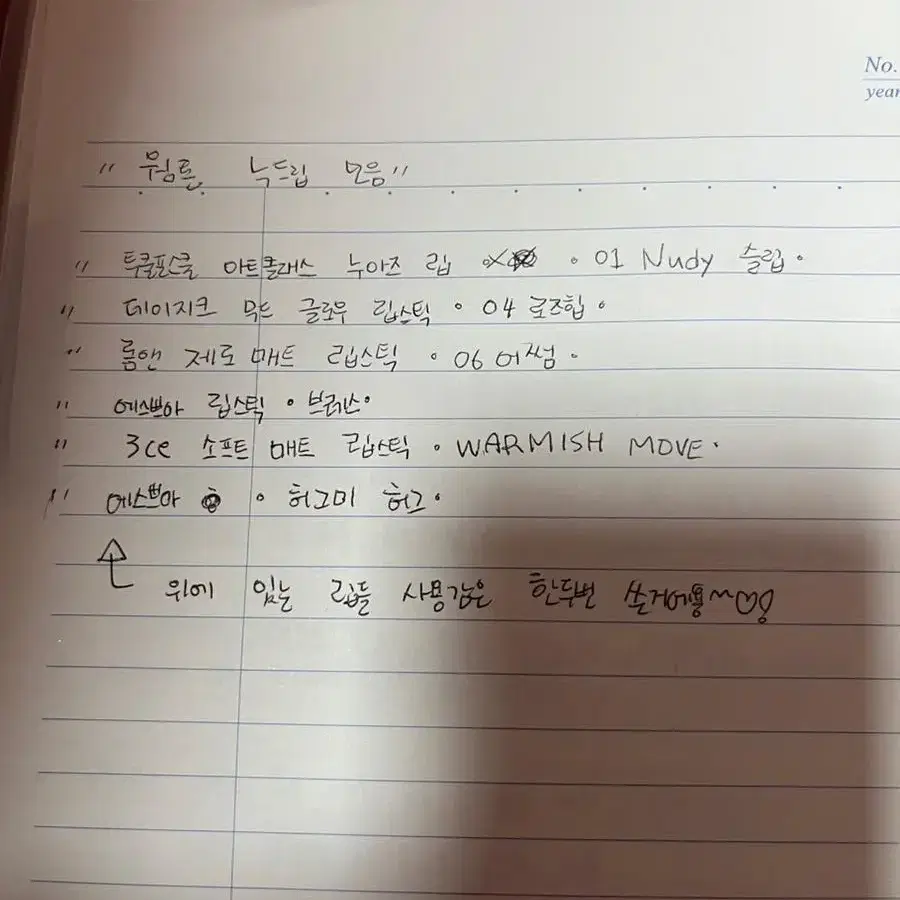 No.
year
" 웜톤 누드립 모음"
" 투쿨포스쿨 아트클래스 누아즈 립 · 01 Nudy 슬립 ·
" 데이지크 무드 글로우 립스틱 · 04 로즈힙 ·
" 롬앤 제로 매트 립스틱 · 06 어썸 ·
" 에스쁘아 립스틱 ·
" 3ce 소프트 매트 립스틱 · WARMISH MOVE ·
" 에스쁘아 · 허그미 허그 ·
위에 있는 립들 사용감은 한두번 쓴거에용~♡